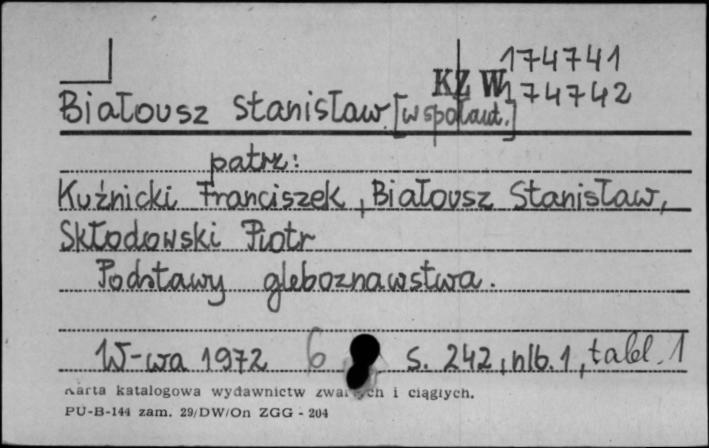 174741
KZ W 174742
Białousz Stanisław [współaut.]
patrz:
Kuźnicki Franciszek, Białousz Stanisław,
Skłodowski Piotr
Podstawy gleboznawstwa.
W-wa 1972 6 s. 242, nlb. 1, tabl. 1
Karta katalogowa wydawnictw zwartych i ciągłych.
PU-B-144 zam. 29/DW/On ZGG - 204